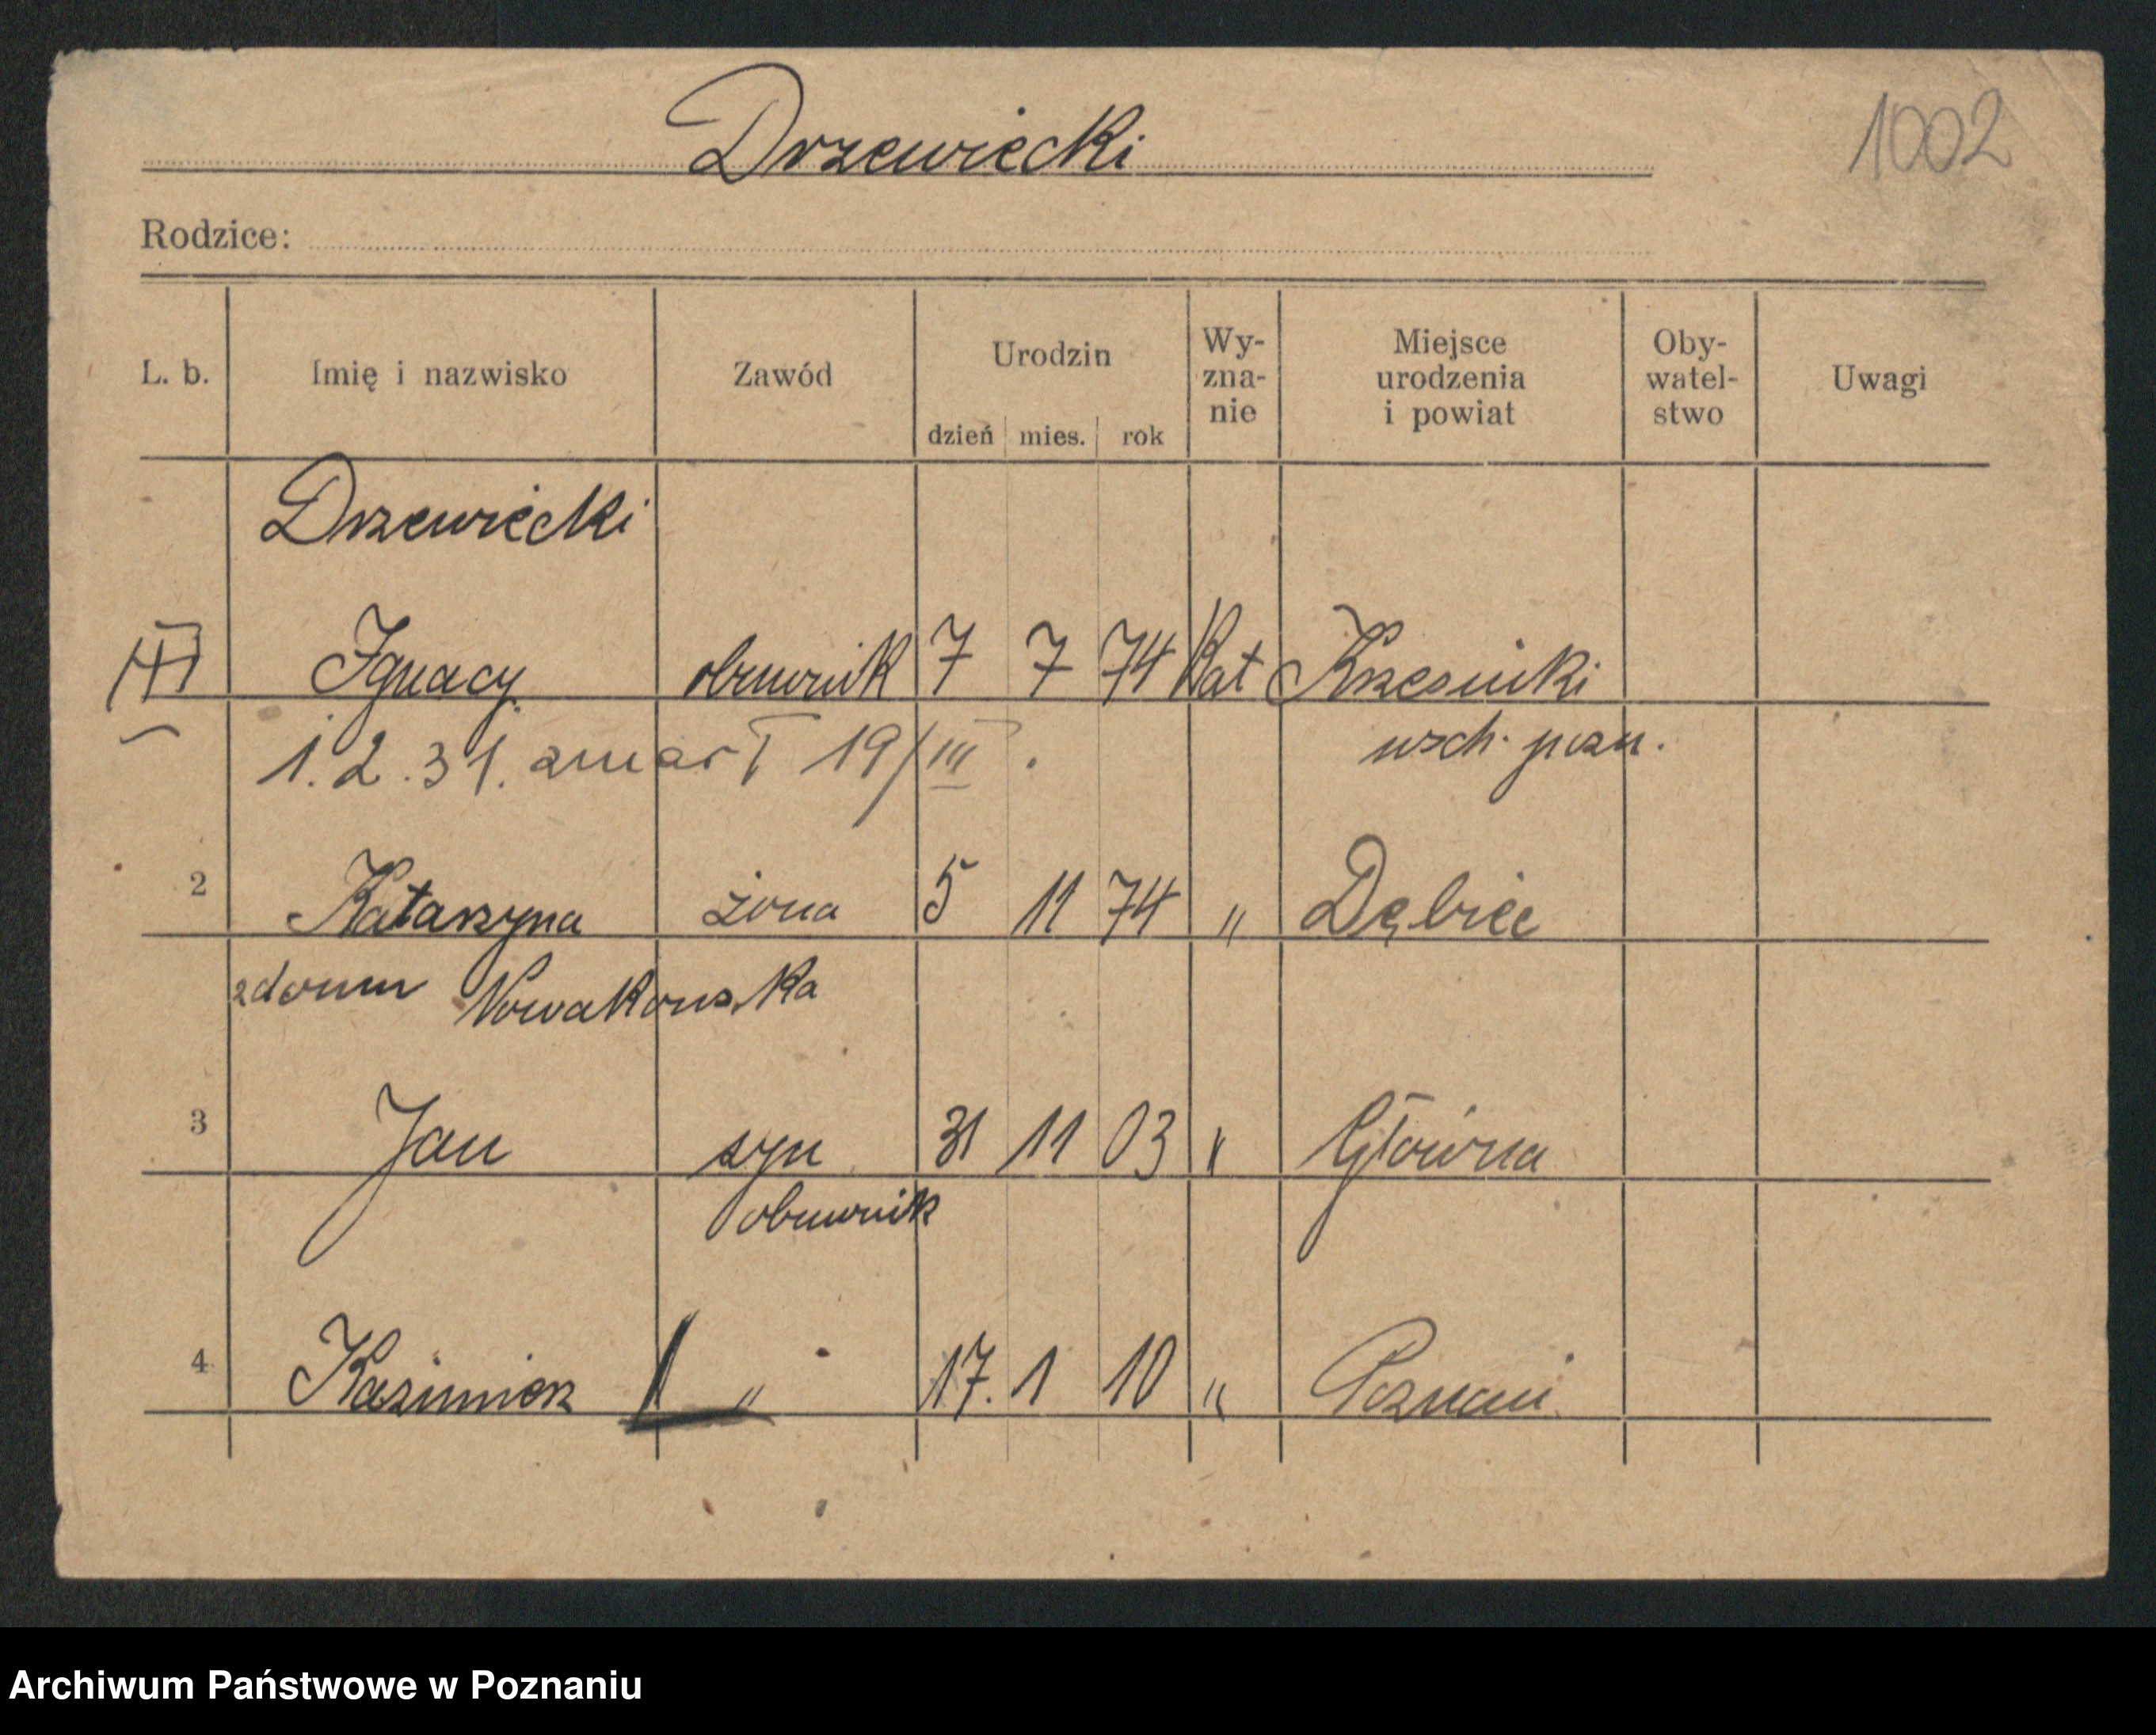 Drzewiecki
1002
Rodzice:
L. b. Imię i nazwisko Zawód Urodzin dzień mies. rok Wy-zna-nie Miejsce urodzenia i powiat Oby-watel-stwo Uwagi
Drzewiecki
Ignacy obuwnik 7 7 74 Kat Krzesinki
1.2.31. zmarł 19/III. wsch. pozn.
2 Katarzyna żona 5 11 74 " Dębiec
zdomu Nowakowska
3 Jan syn 31 11 03 " Główna
obuwnik
4 Kazimierz " 17. 1 10 " Poznań
Archiwum Państwowe w Poznaniu